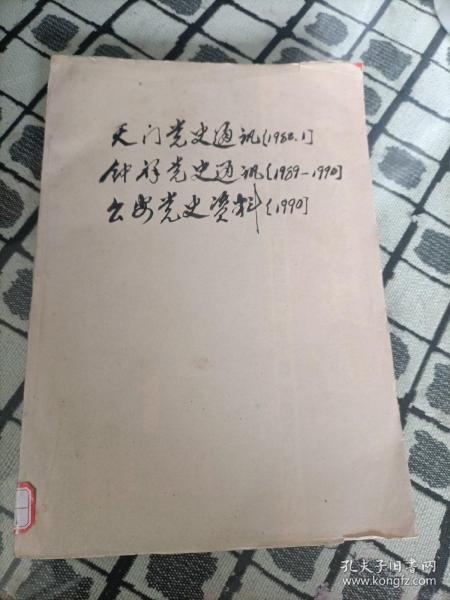 天门党史通讯[1988.1]
钟祥党史通讯[1989-1990]
公安党史资料[1990]
孔夫子旧书网
www.kongfz.com